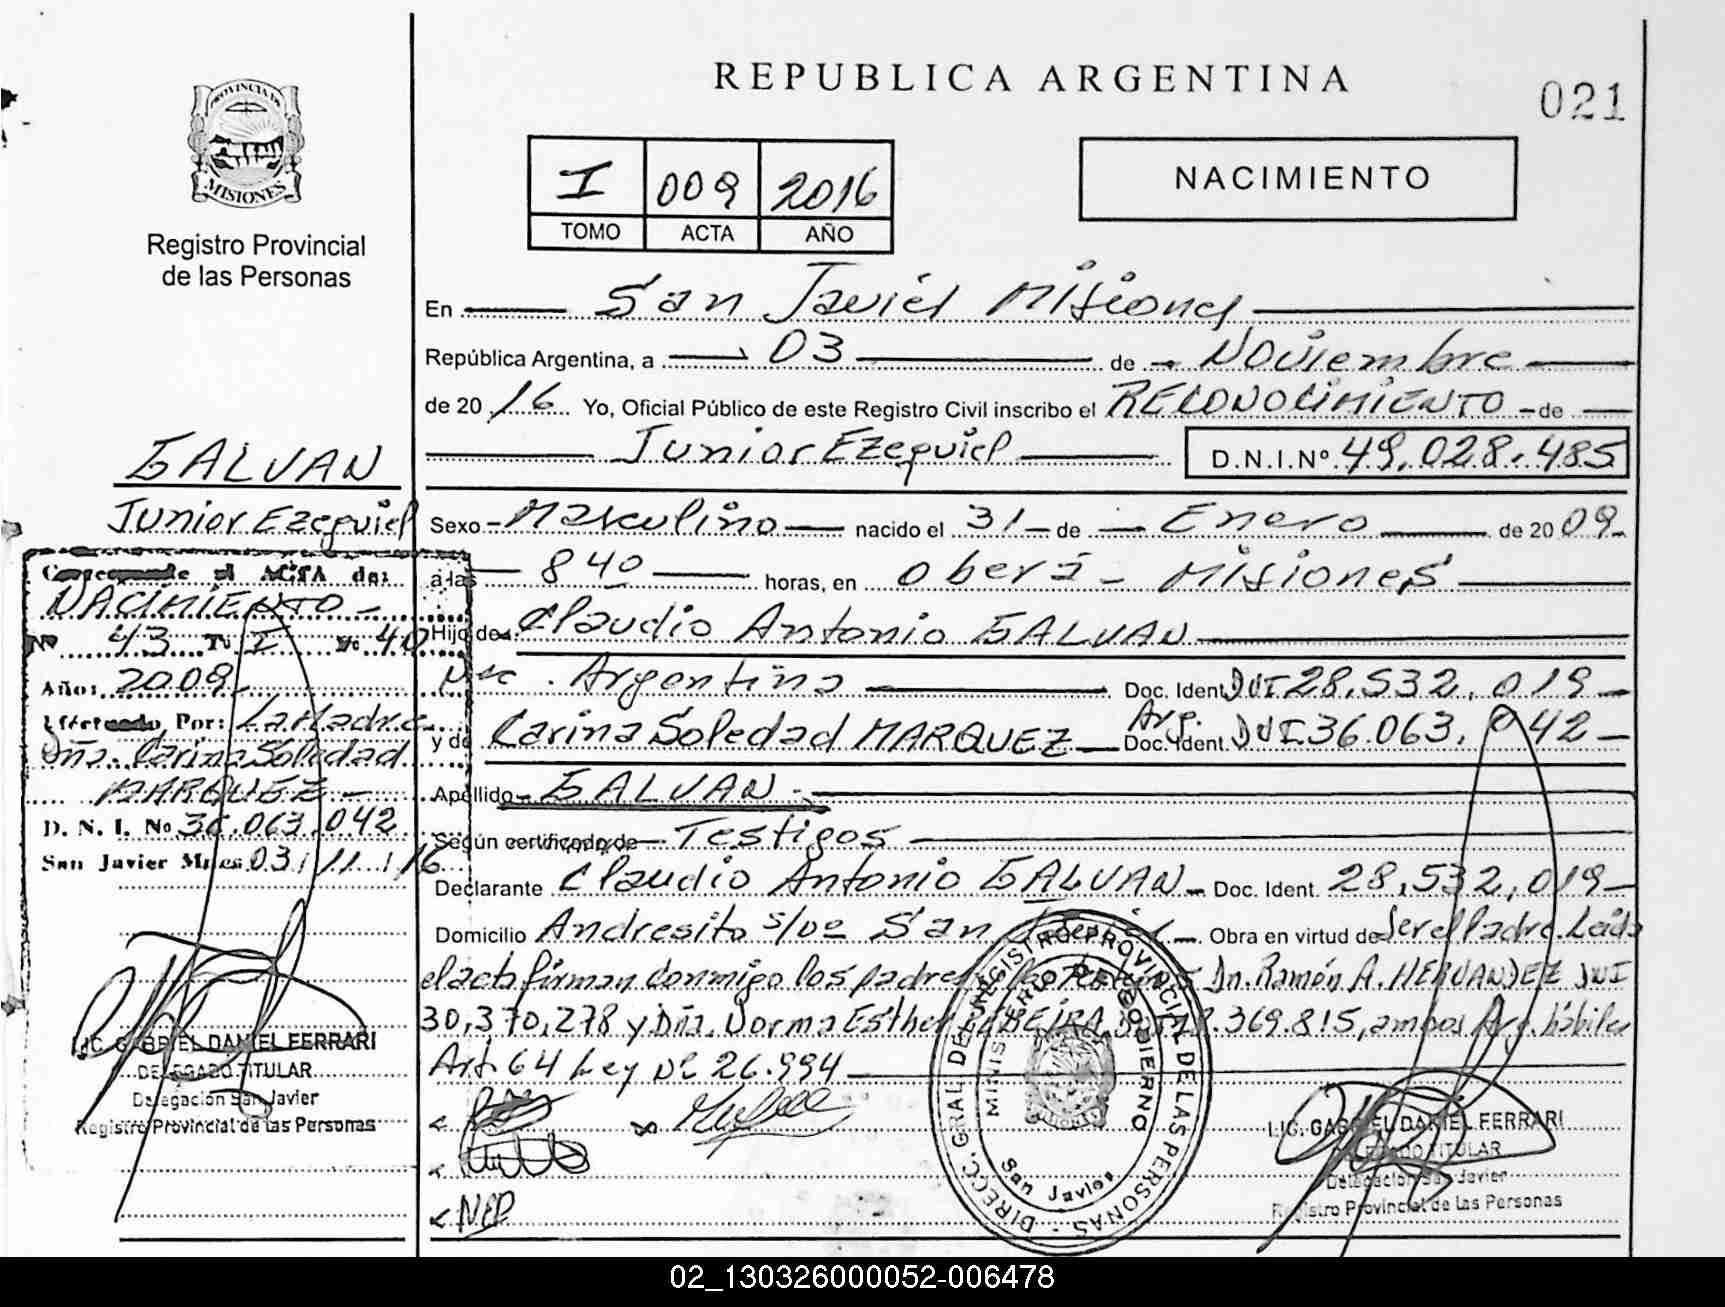 REPUBLICA ARGENTINA
021
PROVINCIA DE
MISIONES
Registro Provincial
de las Personas
I 009 2016
TOMO ACTA AÑO
NACIMIENTO
En San Javier Misiones
República Argentina, a 03 de Noviembre
de 20 16 Yo, Oficial Público de este Registro Civil inscribo el RECONOCIMIENTO de
Junior Ezequiel D.N.I.Nº 49.028.485
Sexo Masculino nacido el 31 de Enero de 20 09
a las 8 40 horas, en Oberá - Misiones
Hijo de Claudio Antonio GALVAN
Nac. Argentina Doc. Ident. DNI 28.532.019
y de Carina Soledad MARQUEZ Arg. Doc. Ident. DNI 36.063.042
Apellido GALVAN
Según certificado de Testigos
Declarante Claudio Antonio GALVAN Doc. Ident. 28.532.019
Domicilio Andresito s/nº San Javier Obra en virtud de Ser el Padre. Leida
el acta firman conmigo los padres Dn. Ramón A. HERNANDEZ DNI
30,370,278 y Dña. Norma Esther 369.815, ambos Arg. hábiles
Art. 64 Ley Nº 26.994
GALVAN
Junior Ezequiel
Corresponde al ACTA de:
NACIMIENTO
Nº 43 Tº I Fº 40
Año: 2009
Efectuado Por: La Madre
Dña. Carina Soledad
MARQUEZ
D. N. I. No 36.063.042
San Javier Mnes 03/11/16
LIC. GABRIEL DANIEL FERRARI
DELEGADO TITULAR
Delegación San Javier
Registro Provincial de las Personas
DIRECC. GRAL. DE REGISTRO PROVINCIAL DE LAS PERSONAS
MINISTERIO DE GOBIERNO
San Javier
LIC. GABRIEL DANIEL FERRARI
DELEGADO TITULAR
Delegación San Javier
Registro Provincial de las Personas
02_130326000052-006478